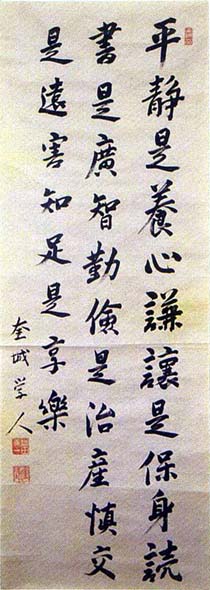 平静是養心謙讓是保身読
書是廣智勤儉是治產慎交
是遠害知足是享樂
奎城学人